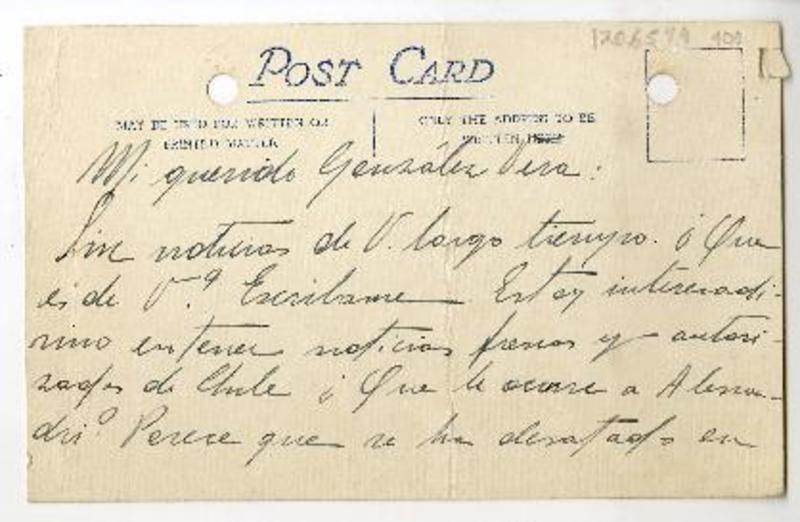 1206579 909
POST CARD
MAY BE USED FOR WRITTEN OR
PRINTED MATTER
ONLY THE ADDRESS TO BE
WRITTEN HERE
Mi querido González Vera:
Sin noticias de V. largo tiempo. ¿Que
es de V.? Escribame. Estoy interesadi-
simo en tener noticias frescas y autori-
zadas de Chile ¿Que le ocurre a Alessan-
dri? Parece que se ha desatado en